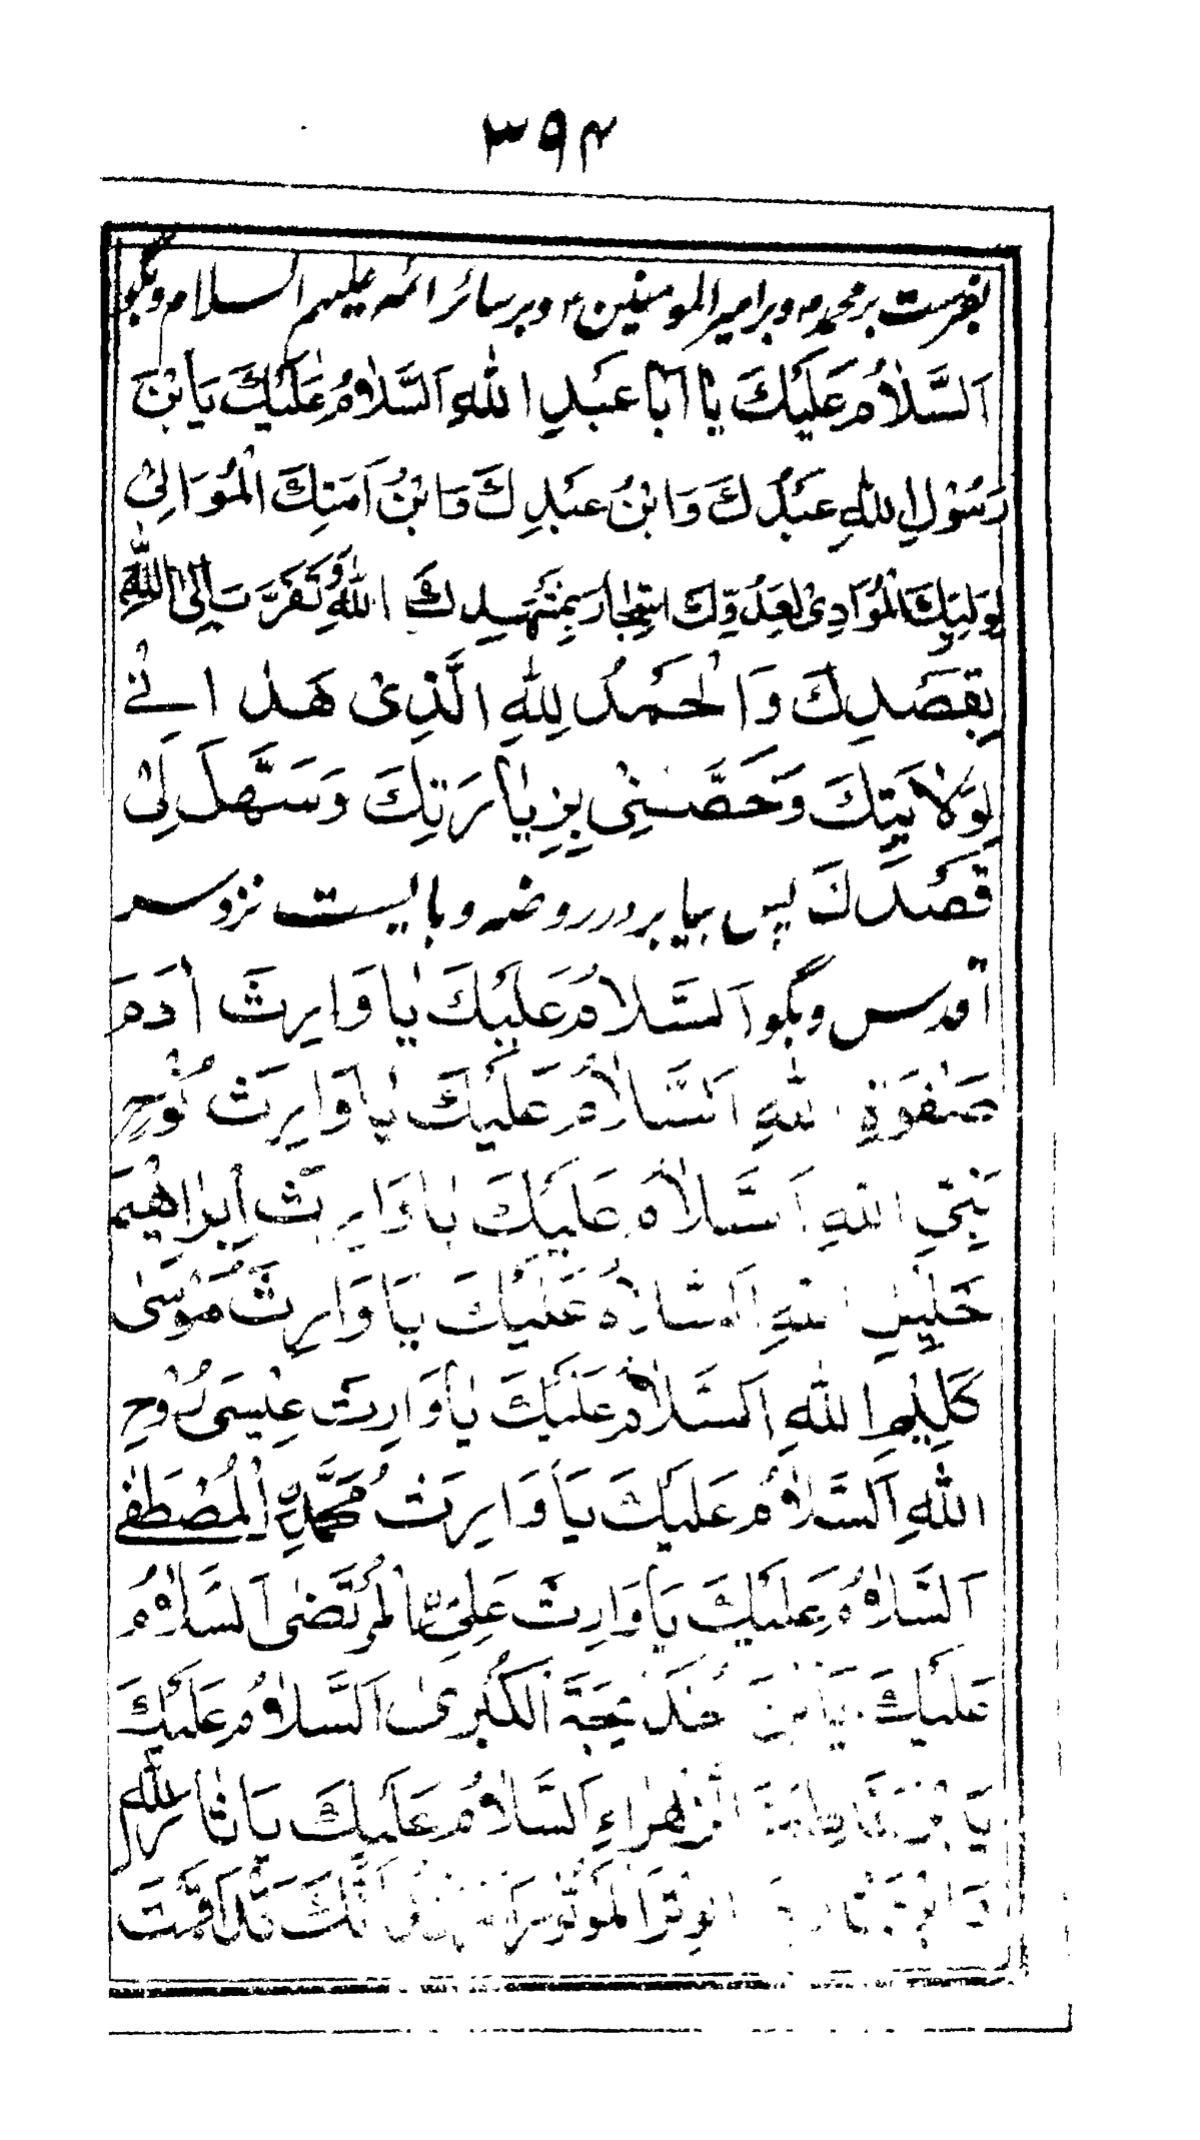 ۳۹۴
بفرست بر محمدؐ و بر امیر المومنینؑ و بر سائر ائمه علیهم السلام و بگو
اَلسَّلَامُ عَلَيْكَ يَا اَبَا عَبْدِ اللهِ اَلسَّلَامُ عَلَيْكَ يَا بْنَ
رَسُوْلِ اللهِ عَبْدُكَ وَابْنُ عَبْدِكَ وَابْنُ اَمَتِكَ الْمُوَالِيْ
لِوَلِيِّكَ الْمُوَادِيْ لِعَدُوِّكَ اسْتَجَارَ بِمَشْهَدِكَ اللهُ وَ تَقَرَّبَ اِلَى اللهِ
بِقَصْدِكَ وَالْحَمْدُ لِلّٰهِ الَّذِيْ هَدٰانِيْ
لِوَلَايَتِكَ وَخَصَّنِيْ بِزِيَارَتِكَ وَسَهَّلَ لِيْ
قَصْدَكَ پس بیا بر در روضه و بایست نزد سر
اقدس و بگو اَلسَّلَامُ عَلَيْكَ يَا وَارِثَ اٰدَمَ
صَفْوَةِ اللهِ اَلسَّلَامُ عَلَيْكَ يَا وَارِثَ نُوْحٍ
نَبِيِّ اللهِ اَلسَّلَامُ عَلَيْكَ يَا وَارِثَ اِبْرَاهِيْمَ
خَلِيْلِ اللهِ اَلسَّلَامُ عَلَيْكَ يَا وَارِثَ مُوْسٰى
كَلِيْمِ اللهِ اَلسَّلَامُ عَلَيْكَ يَا وَارِثَ عِيْسَى رُوْحِ
اللهِ اَلسَّلَامُ عَلَيْكَ يَا وَارِثَ مُحَمَّدٍ الْمُصْطَفٰى
اَلسَّلَامُ عَلَيْكَ يَا وَارِثَ عَلِيٍّ الْمُرْتَضٰى اَلسَّلَامُ
عَلَيْكَ يَا بْنَ خَدِيْجَةَ الْكُبْرٰى اَلسَّلَامُ عَلَيْكَ
يَا بْنَ فَاطِمَةَ الزَّهْرَاءِ اَلسَّلَامُ عَلَيْكَ يَا ثَارَ اللهِ
وَابْنَ ثَارِهٖ وَالْوِتْرَ الْمَوْتُوْرَ اَشْهَدُ اَنَّكَ قَدْ اَقَمْتَ